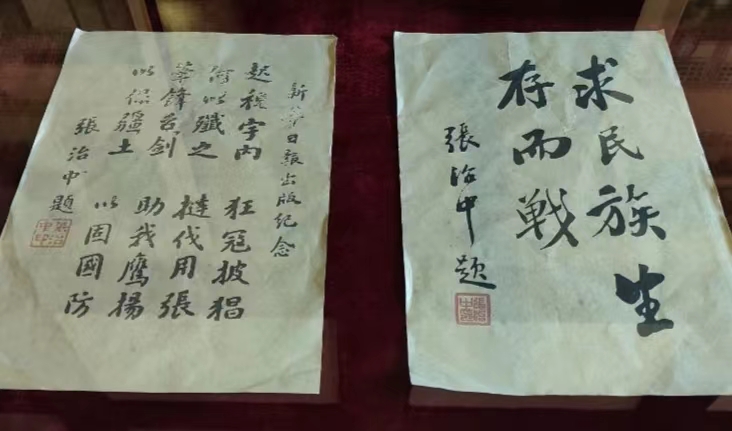 新華日報出版紀念
穢宇內 狂寇披猖
何以殲之 撻伐用張
筆鋒舌劍 助我鷹揚
以保疆土 以固國防
張治中題
求民族生
存而戦
張治中題